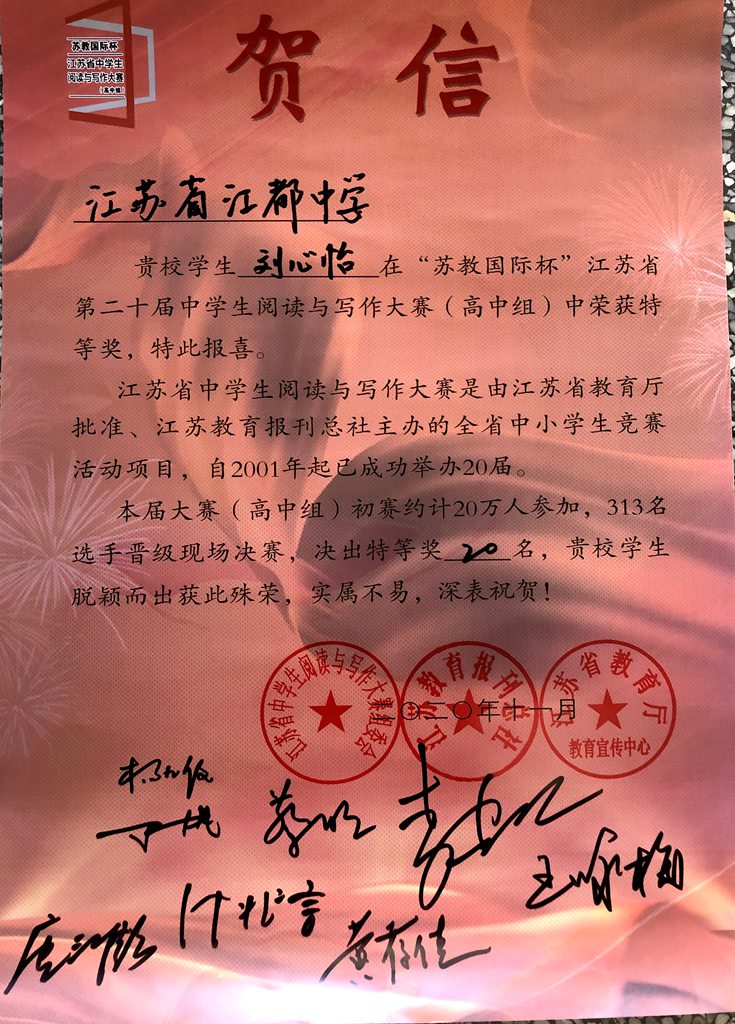 苏教国际杯
江苏省中学生
阅读与写作大赛
（高中组）
贺信
江苏省江都中学
贵校学生刘心怡在“苏教国际杯”江苏省
第二十届中学生阅读与写作大赛（高中组）中荣获特
等奖，特此报喜。
江苏省中学生阅读与写作大赛是由江苏省教育厅
批准、江苏教育报刊总社主办的全省中小学生竞赛
活动项目，自2001年起已成功举办20届。
本届大赛（高中组）初赛约计20万人参加，313名
选手晋级现场决赛，决出特等奖20名，贵校学生
脱颖而出获此殊荣，实属不易，深表祝贺！
江苏省中学生阅读与写作大赛组委会
江苏教育报刊总社
江苏省教育厅
教育宣传中心
二〇二〇年十一月
王咏梅
黄存佳